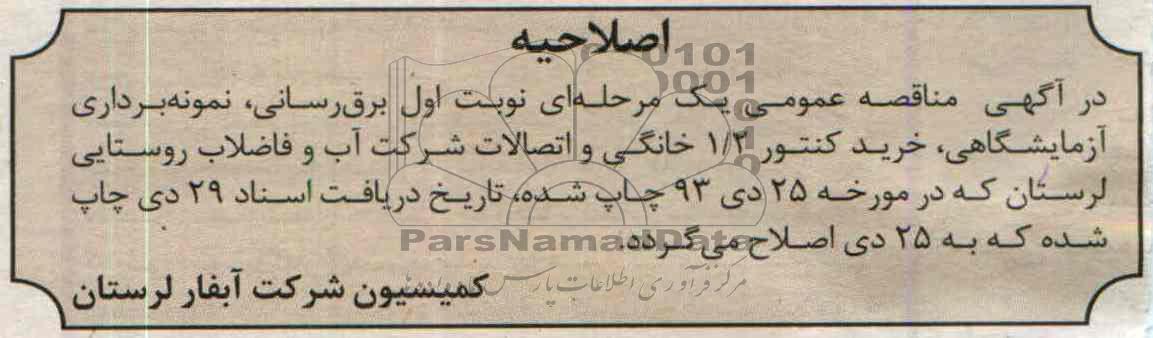 اصلاحیه
در آگهی مناقصه عمومی یک مرحله‌ای نوبت اول برق‌رسانی، نمونه‌برداری
آزمایشگاهی، خرید کنتور ۱/۲ خانگی و اتصالات شرکت آب و فاضلاب روستایی
لرستان که در مورخه ۲۵ دی ۹۳ چاپ شده، تاریخ دریافت اسناد ۲۹ دی چاپ
شده که به ۲۵ دی اصلاح می‌گردد.
ParsNamadData
کمیسیون شرکت آبفار لرستان
مرکز فرآوری اطلاعات پارس